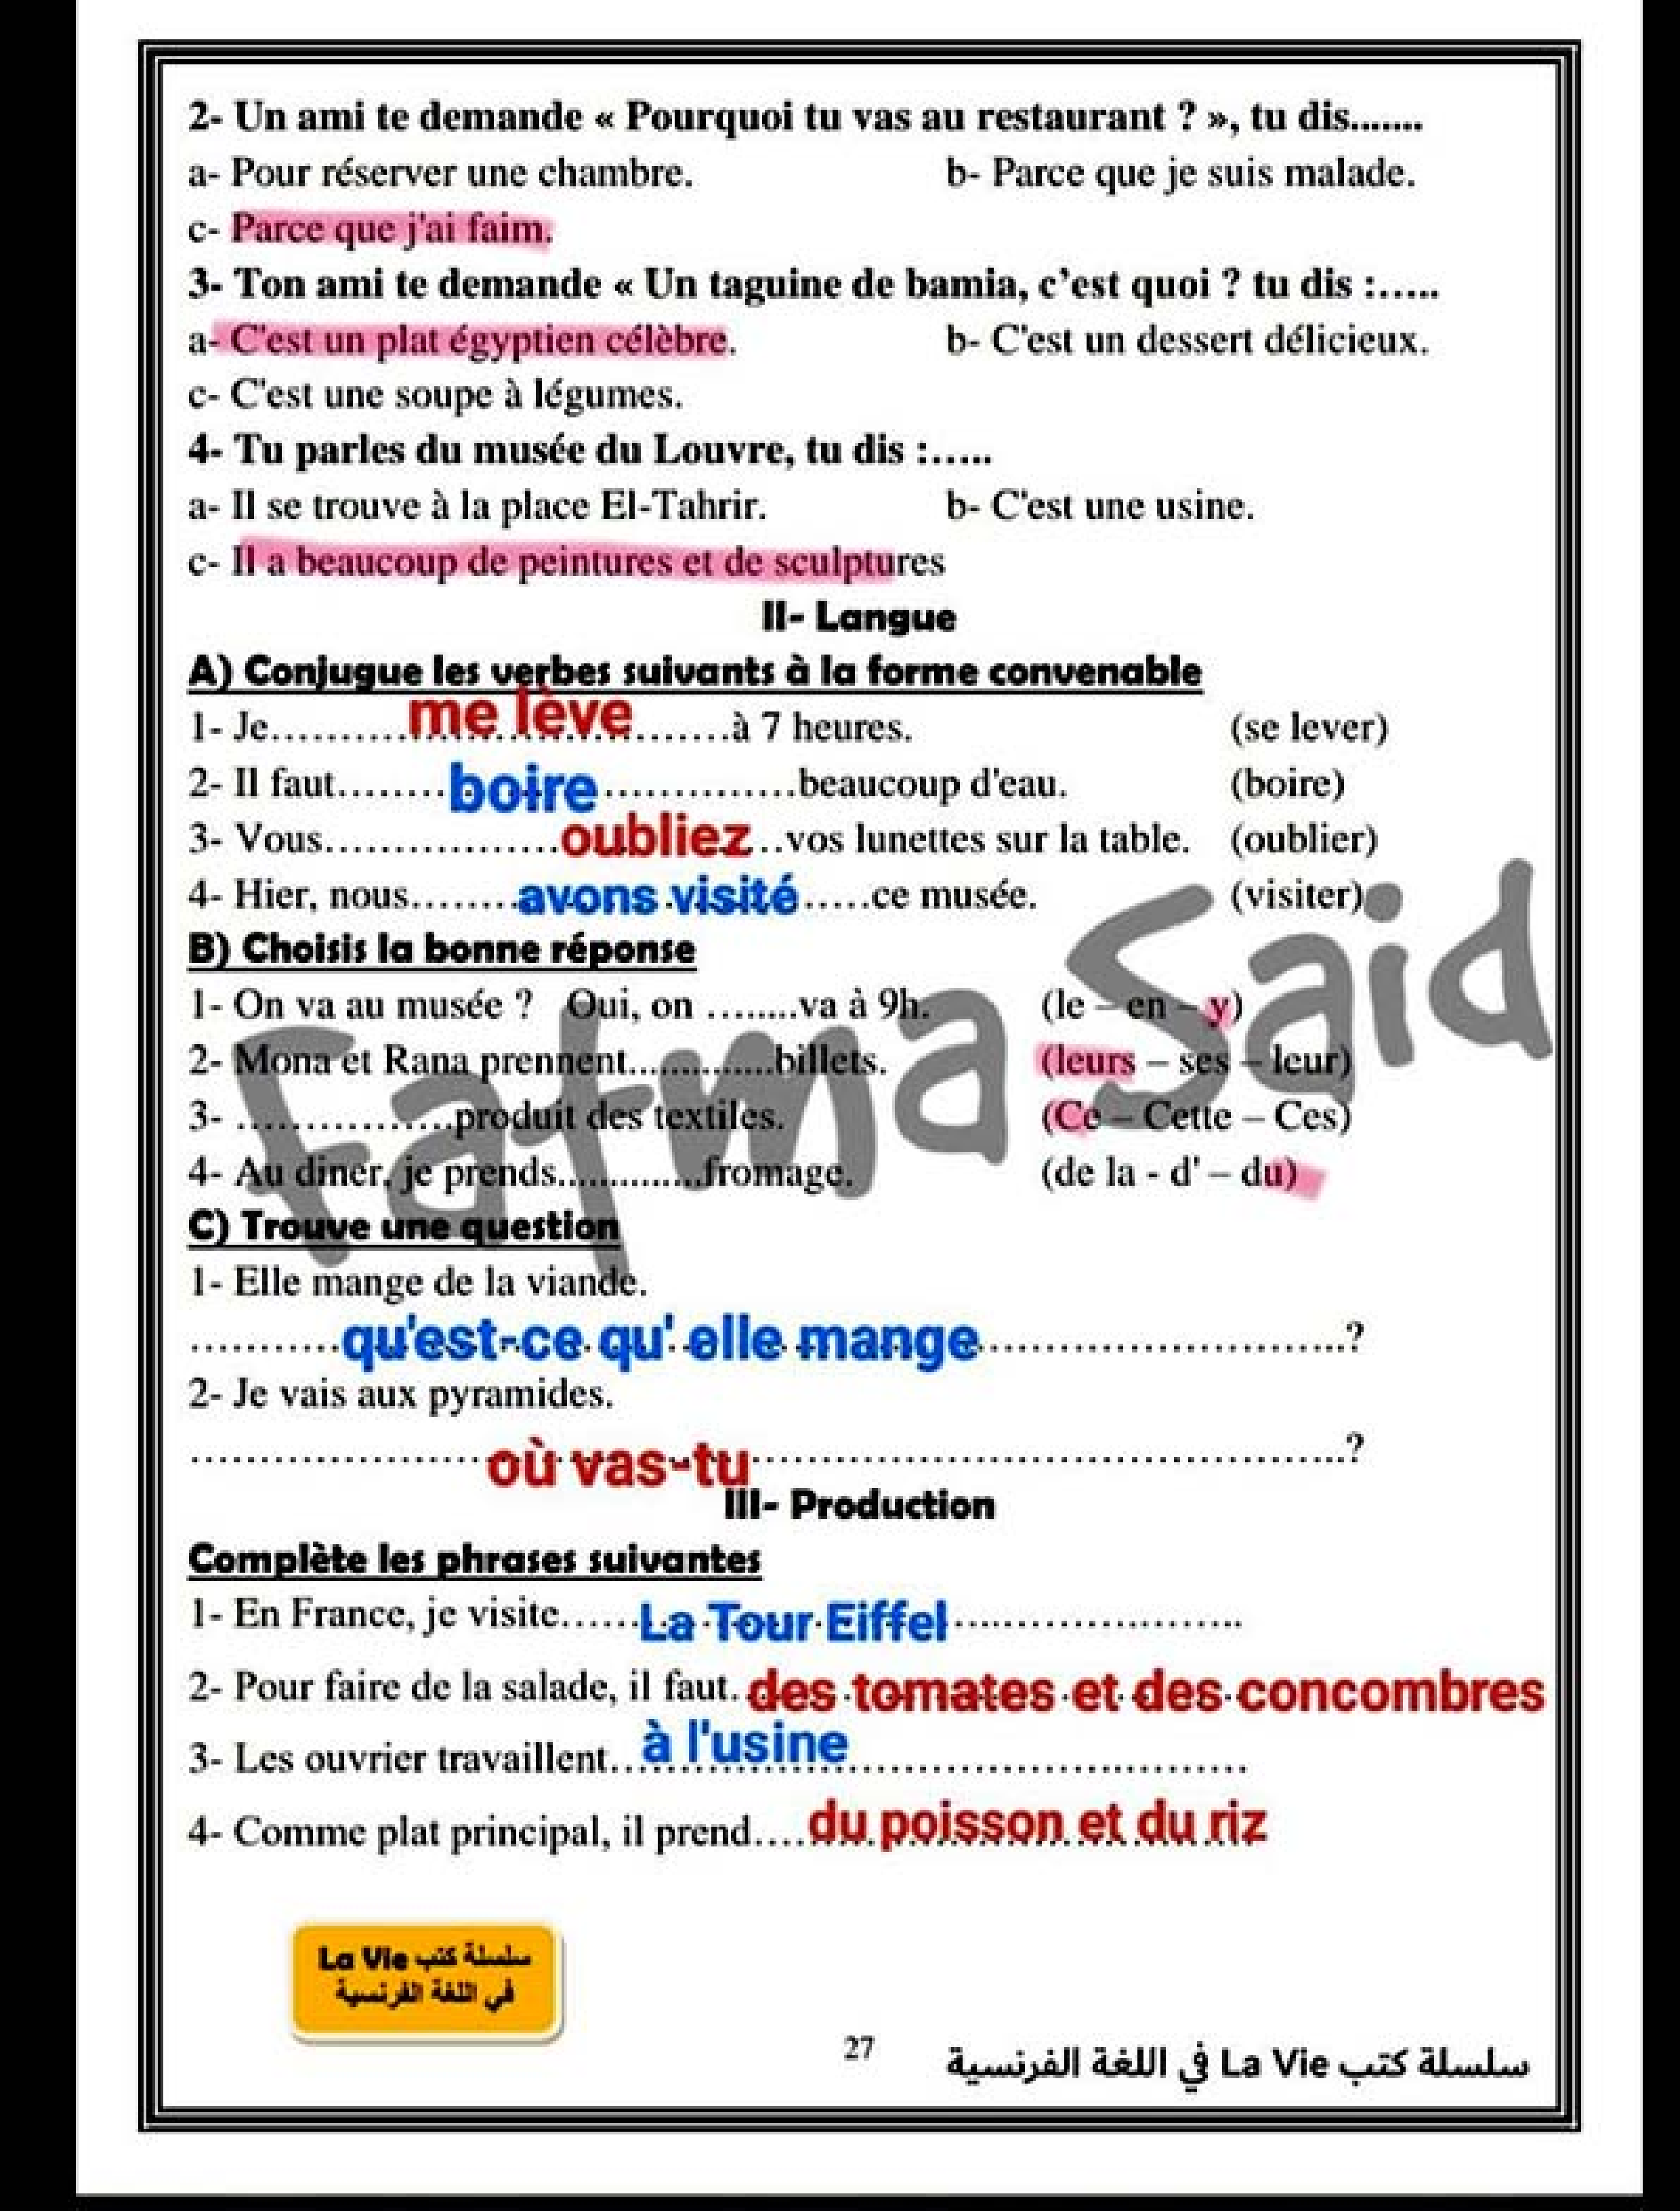 2- Un ami te demande « Pourquoi tu vas au restaurant ? », tu dis.......
a- Pour réserver une chambre. b- Parce que je suis malade.
c- Parce que j'ai faim.
3- Ton ami te demande « Un taguine de bamia, c’est quoi ? tu dis :…..
a- C'est un plat égyptien célèbre. b- C'est un dessert délicieux.
c- C'est une soupe à légumes.
4- Tu parles du musée du Louvre, tu dis :…..
a- Il se trouve à la place El-Tahrir. b- C'est une usine.
c- Il a beaucoup de peintures et de sculptures
II- Langue
A) Conjugue les verbes suivants à la forme convenable
1- Je..........me lève.......à 7 heures. (se lever)
2- Il faut........boire..............beaucoup d'eau. (boire)
3- Vous.................oubliez..vos lunettes sur la table. (oublier)
4- Hier, nous........avons visité.....ce musée. (visiter)
B) Choisis la bonne réponse
1- On va au musée ? Oui, on ........va à 9h. (le – en – y)
2- Mona et Rana prennent..............billets. (leurs – ses – leur)
3- ................produit des textiles. (Ce – Cette – Ces)
4- Au diner, je prends..............fromage. (de la - d' – du)
Fatma Said
C) Trouve une question
1- Elle mange de la viande.
...........qu'est-ce qu' elle mange...........................?
2- Je vais aux pyramides.
......................où vas-tu............................................?
III- Production
Complète les phrases suivantes
1- En France, je visite......La Tour Eiffel.....................
2- Pour faire de la salade, il faut. des tomates et des concombres
3- Les ouvrier travaillent..à l'usine.............................
4- Comme plat principal, il prend....du poisson et du riz
سلسلة كتب La Vie
في اللغة الفرنسية
27
سلسلة كتب La Vie في اللغة الفرنسية